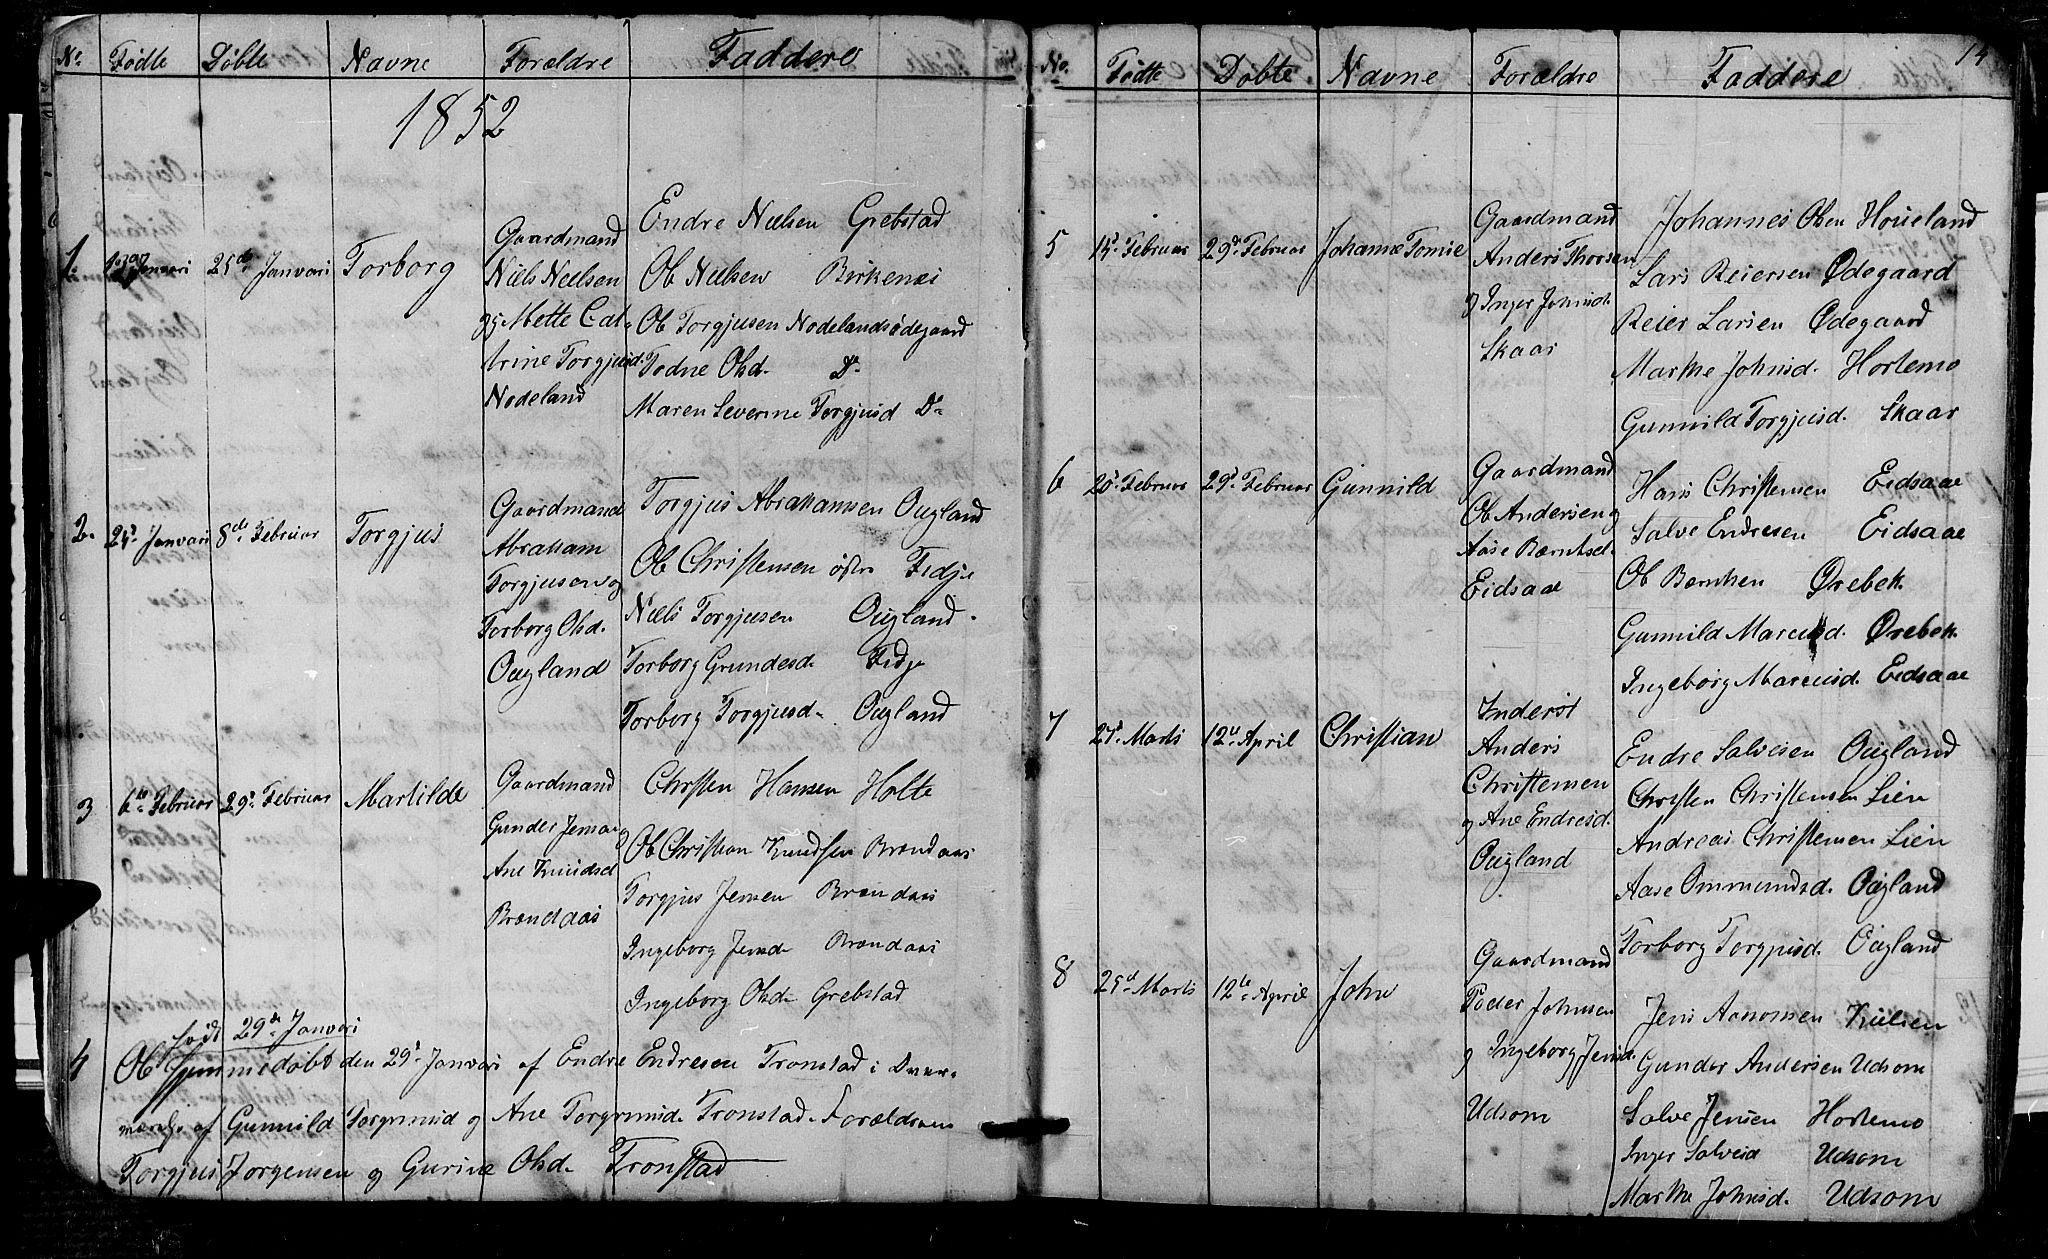 No. Fødte Døbte Navne Forældre Faddere
1852
1. Januari 25de Januari Torborg
Gaardmand
Niels Nielsen
og Mette Cat-
trine Torgjusd.
Nodeland
Endre Nielsen Grebstad
Ole Nielsen Birkenes
Ole Torgjusen Nodelandsødegaard
Todne Olsd. Do
Maren Severine Torgjusd Do
2. 24d. Januari 8de Februar Torgjus
Gaardmand
Abraham
Torgjusen og
Torborg Olsd.
Øugland
Torgjus Abrahamsen Øugland
Ole Christensen østr Fidje
Niels Torgjusen Øugland
Torborg Grundesd. Fidje
Torborg Torgjusd. Øugland
3 6te Februar 29d. Februar Martilde
Gaardmand
Gunder Jensen og
Ane Knudsd
Brændaas
Christen Hansen Holte
Ole Christian Knudsen Brændaas
Torgjus Jensen Brændaas
Ingeborg Jensd Brændaas
Ingeborg Olsd. Grebstad
født 29de Januari
4 Ole hjemmedøbt den 29d. Januari af Endre Endresen Tronstad i Over-
værelse af Gunnild Torgrimsd og Ane Torgrimsd. Tronstad. Forældrene
Torgjus Jørgensen og Gurine Olsd. Tronstad
14
No. Fødte Døbte Navne Forældre Faddere
5 14d. Februar 29de Februar Johanne Tomie
Gaardmand
Anders Thorsen
og Inger Johnsd.
Skaar
Johannes Olsen Houeland
Lars Reiersen Ødegaard
Reier Larsen Ødegaard
Marthe Johnsd. Hortemo
Gunnild Torgjusd. Skaar
6 20d. Februar 29d. Februar Gunnild
Gaardmand
Ole Andersen og
Aase Bærntsd.
Eidsaae
Hans Christensen Eidsaae
Salve Endresen Eidsaae
Ole Berntsen Ørebek
Gunnild Marcusd. Ørebek
Ingeborg Marcusd. Eidsaae
7 27d. Marts 12te April Christian
Inderst
Anders
Christensen
og Ane Endresd.
Øugland
Endre Salvesen Øugland
Christen Christensen Lien
Andreas Christensen Lien
Aase Ommundsd. Øugland
Torborg Torgjusd. Øugland
8 25d. Marts 12te April John
Gaardmand
Peder Johnsen
og Ingeborg Jensd.
Udsom
Jens Aanonsen Kulien
Gunder Andersen Udsom
Salve Jensen Hortemo
Inger Salvesd Udsom
Marthe Johnsd. Udsom